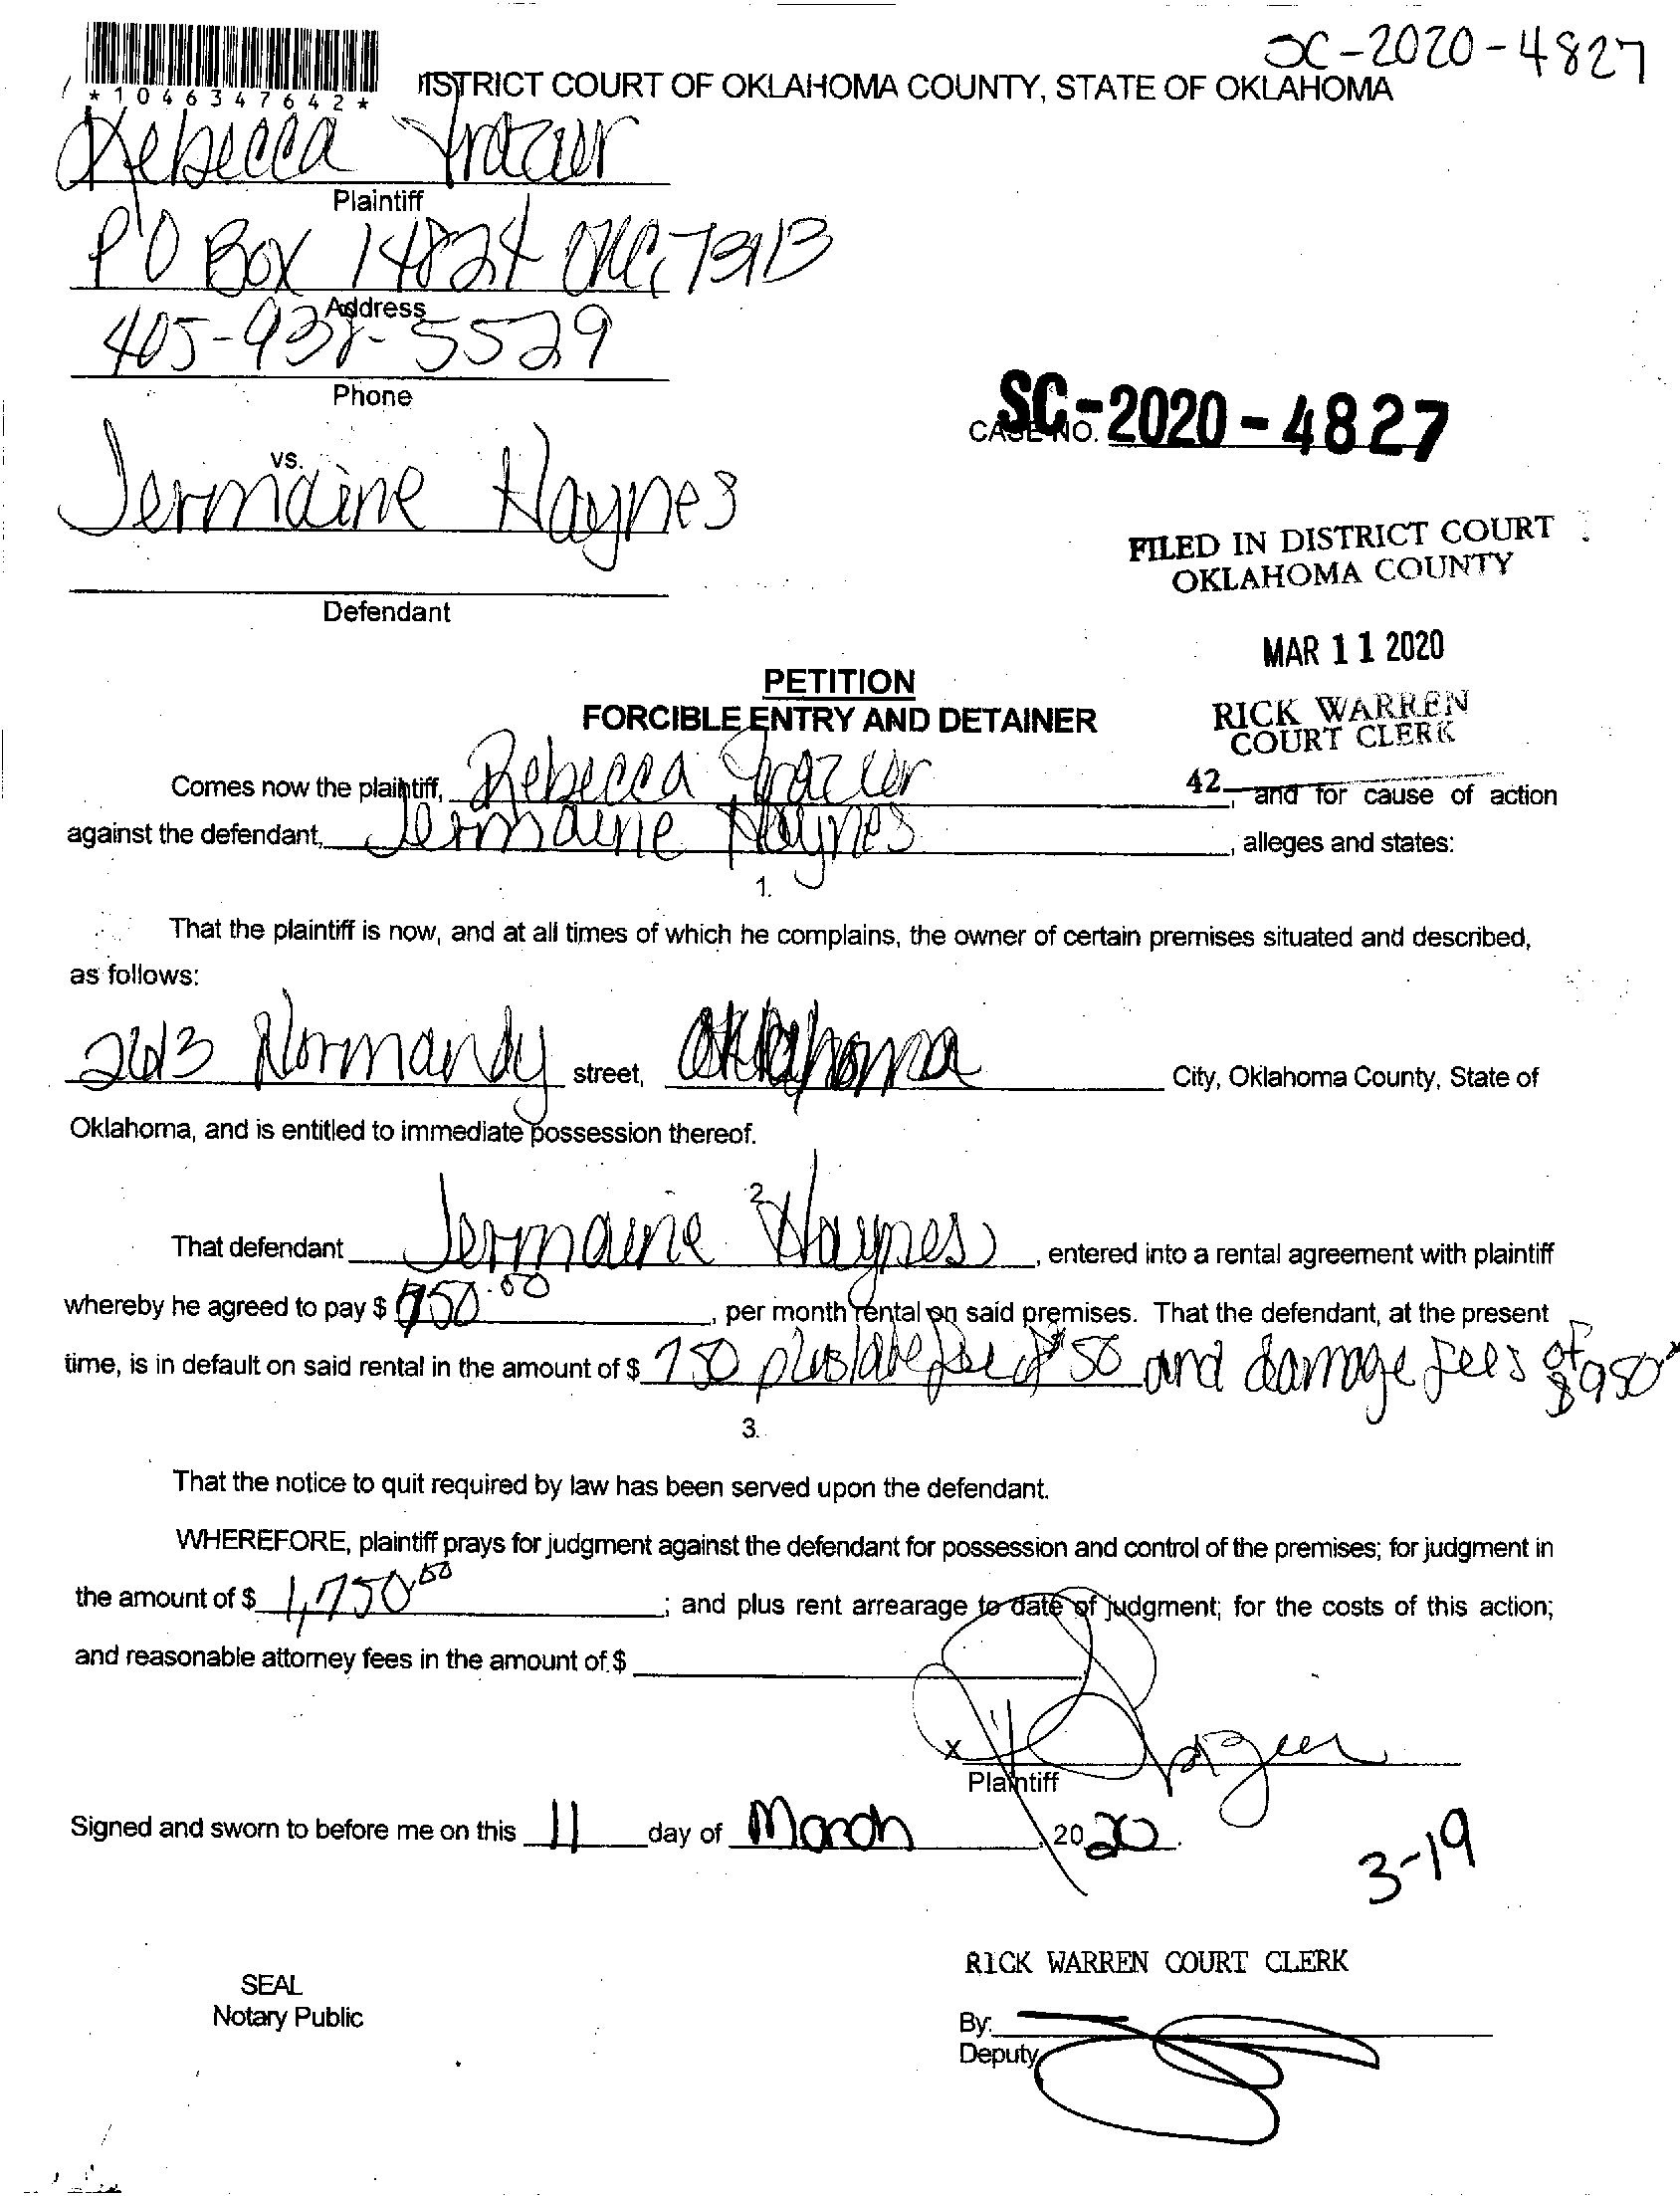 SC-2020-4827
*1046347642*
ISTRICT COURT OF OKLAHOMA COUNTY, STATE OF OKLAHOMA
Rebecca Frazier
Plaintiff
PO Box 14824 OKC, 73113
Address
405-938-5529
Phone
SC-2020-4827
CASE NO.
vs.
Jermaine Haynes
FILED IN DISTRICT COURT
OKLAHOMA COUNTY
Defendant
MAR 11 2020
PETITION
FORCIBLE ENTRY AND DETAINER
RICK WARREN
COURT CLERK
42
Comes now the plaintiff, Rebecca Frazier, and for cause of action
against the defendant, Jermaine Haynes, alleges and states:
1.
That the plaintiff is now, and at all times of which he complains, the owner of certain premises situated and described,
as follows:
2613 Normandy street, Oklahoma City, Oklahoma County, State of
Oklahoma, and is entitled to immediate possession thereof.
2.
That defendant Jermaine Haynes, entered into a rental agreement with plaintiff
whereby he agreed to pay $ 750.00, per month rental on said premises. That the defendant, at the present
time, is in default on said rental in the amount of $ 750 plus late fee of $50 and damage fees of $950
3.
That the notice to quit required by law has been served upon the defendant.
WHEREFORE, plaintiff prays for judgment against the defendant for possession and control of the premises; for judgment in
the amount of $ 1,750.00; and plus rent arrearage to date of judgment; for the costs of this action;
and reasonable attorney fees in the amount of $
X R Frazier
Plaintiff
Signed and sworn to before me on this 11 day of March, 2020.
3-19
RICK WARREN COURT CLERK
SEAL
Notary Public
By:
Deputy